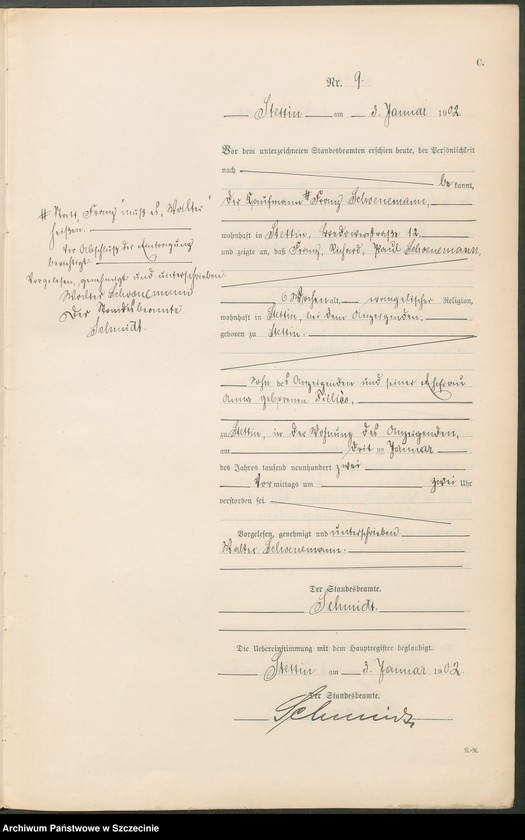 C.
Nr. 9.
Stettin am 3. Januar 1902.
Vor dem unterzeichneten Standesbeamten erschien heute, der Persönlichkeit
nach be kannt,
der Kaufmann # Franz Schoenemann,
wohnhaft in Stettin, Bredowerstraße 12,
und zeigte an, daß Franz, Richard, Paul Schoenemann,
6 Wochen alt, evangelischer Religion,
wohnhaft in Stettin, bei dem Anzeigenden,
geboren zu Stettin.
Sohn des Anzeigenden und seiner Ehefrau
Anna geborenen
zu Stettin, in der Wohnung des Anzeigenden,
am drit en Januar
des Jahres tausend neunhundert zwei
Vor mittags um zwei Uhr
verstorben sei.
Vorgelesen, genehmigt und unterschrieben.
Walter Schoenemann.
Der Standesbeamte.
Schmidt.
Die Uebereinstimmung mit dem Hauptregister beglaubigt.
Stettin am 3. Januar 1902.
Der Standesbeamte.
Schmidt
# Statt „Franz" muß es „Walter"
heißen.
Vor Abschluß der Eintragung
berichtigt.
Vorgelesen, genehmigt und unterschrieben
Walter Schoenemann
Der Standesbeamte
Schmidt.
Archiwum Państwowe w Szczecinie